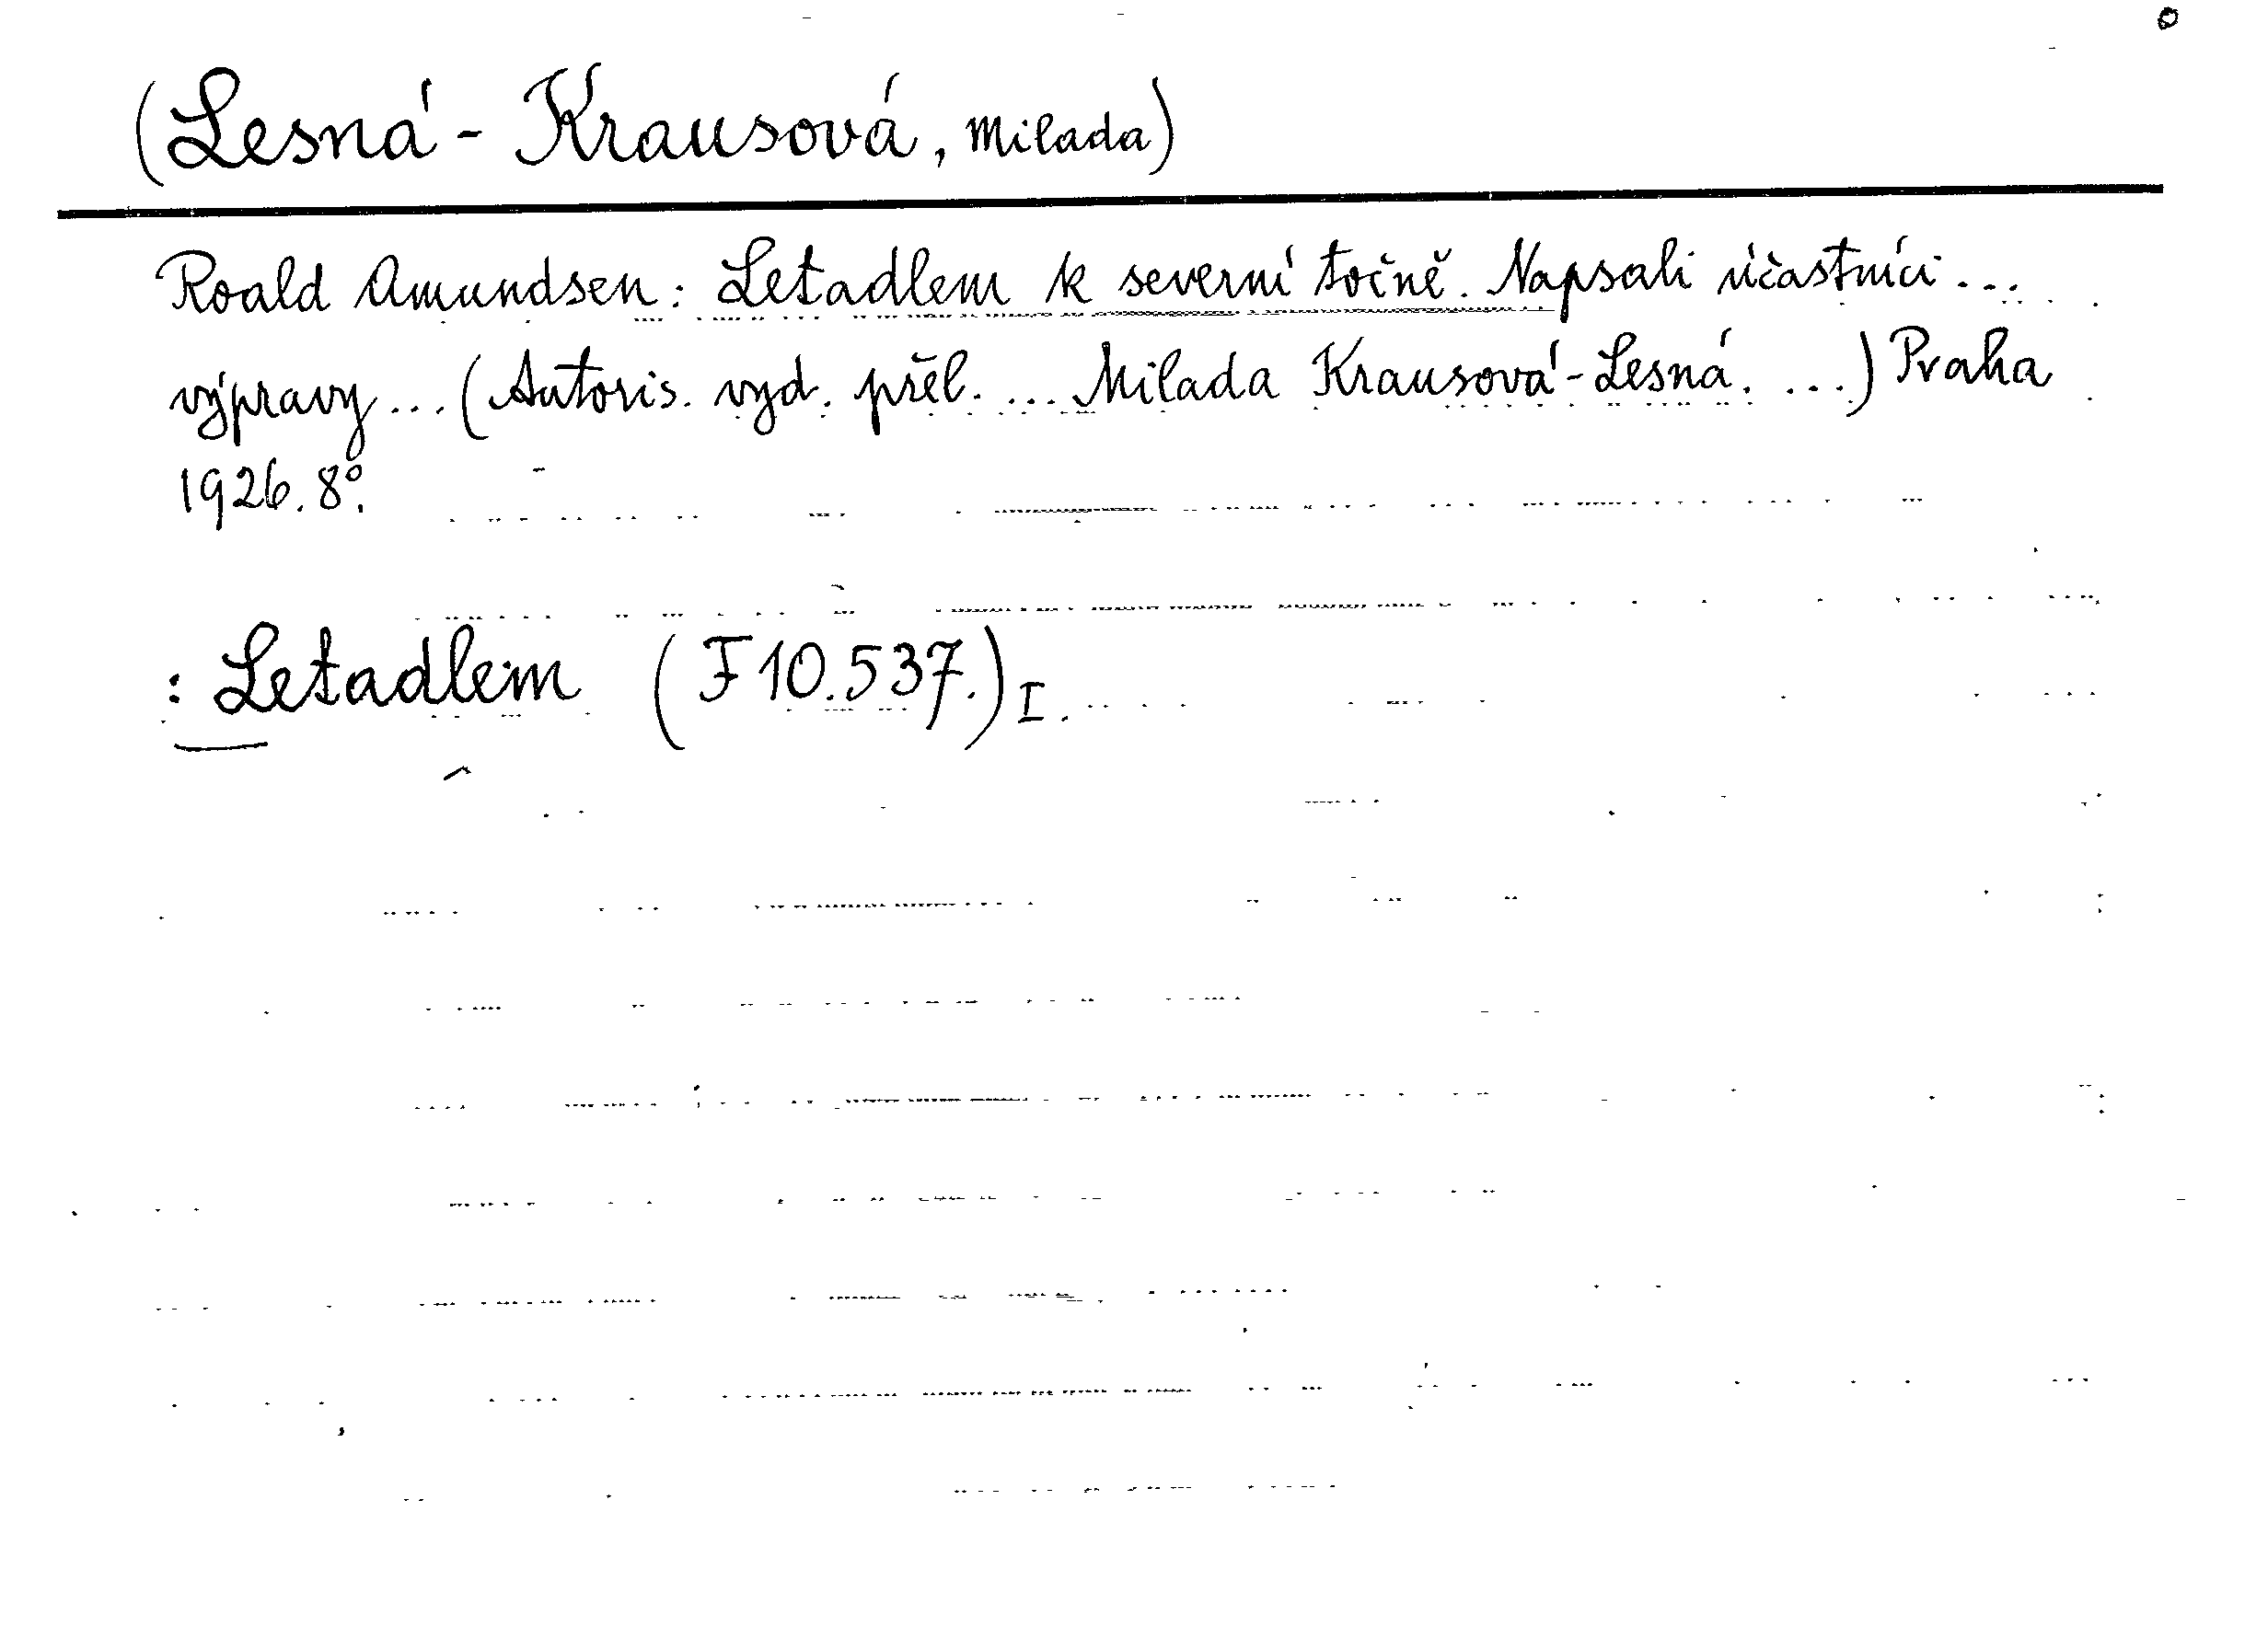 (Lesná-Krausová, Milada)
Roald Amundsen: Letadlem k severní točně. Napsali účastníci...
výpravy...(Autoris. vyd. přel. ... Milada Krausová-Lesná. ...) Praha
1926. 8°.
: Letadlem (F 10.537.) I.